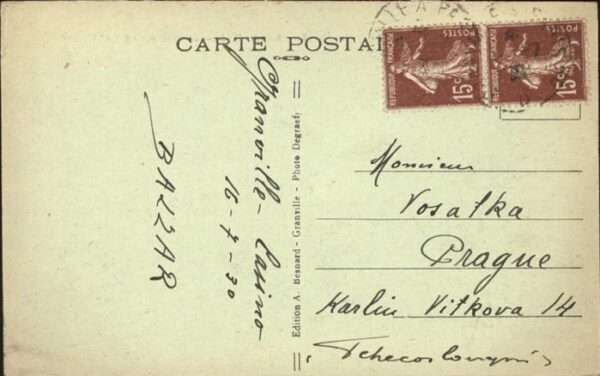 CARTE POSTAL
Granville - Casino
16-7-30
BALZAR
Edition A. Besnard - Granville - Photo Degraef
POSTES
REPUBLIQUE FRANÇAISE
15c
POSTES
REPUBLIQUE FRANÇAISE
15c
Monsieur
Vosatka
Prague
Karlin Vitkova 14